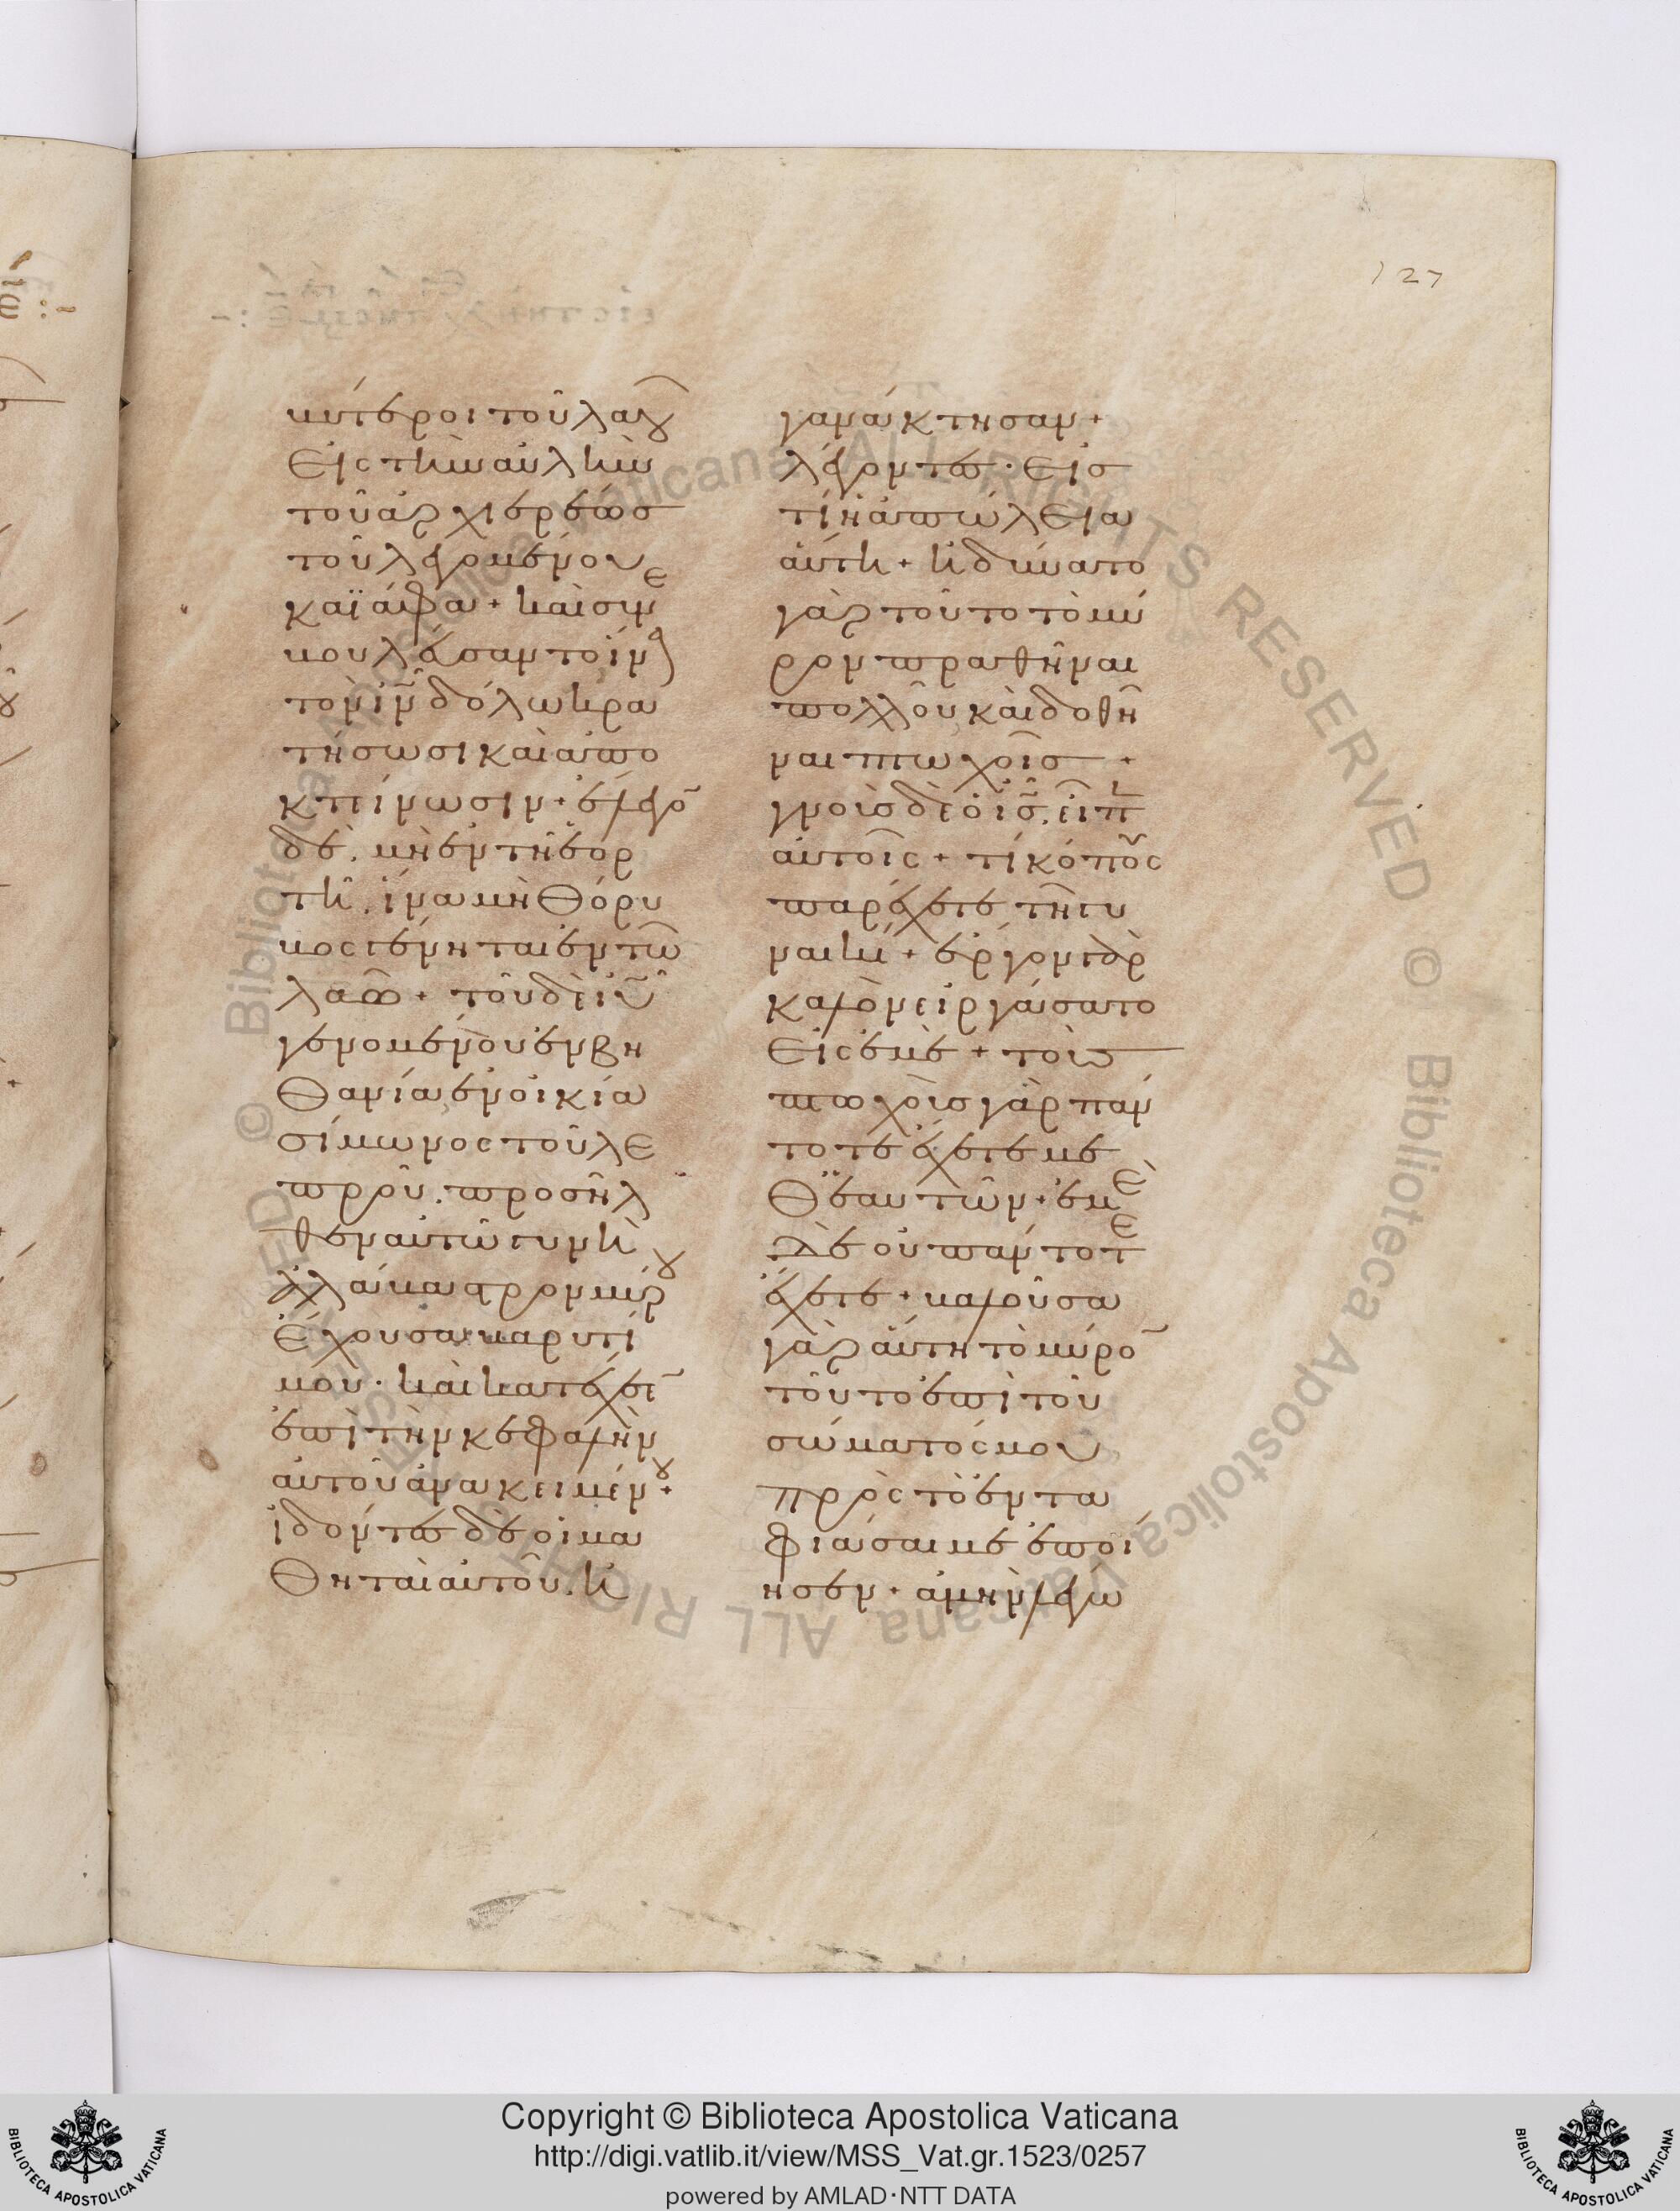 127
κύτεροι τοῦ λαοῦ
εἰς τὴν αὐλὴν
τοῦ ἀρχιερέως
τοῦ λεγομένου
καϊάφα + καὶ συνε
βουλεύσαντο ἵνα
τὸν ιν̅ δόλω κρα
τήσωσι καὶ ἀπο
κτείνωσιν + ἔλεγο̅
δέ. μὴ ἐν τῆ ἑορ
τῆ. ἵνα μὴ θόρυ
βος γένηται ἐν τῶ
λαῶ + τοῦ δὲ ιυ̅
γενομένου ἐν βη
θανία ἐν οἰκία
σίμωνος τοῦ λε
προῦ. προσῆλ
θεν αὐτῶ γυνὴ
ἀλάβαστρον μύρου
ἔχουσα βαρυτί
μου. καὶ κατέχεε̅
ἐπὶ τὴν κεφαλὴν
αὐτοῦ ἀνακειμένου +
ἰδόντες δὲ οἱ μα
θηταὶ αὐτοῦ. ἠ
γανάκτησαν +
λέγοντες. εἰς
τί ἡ ἀπώλεια
αὕτη + ἠδύνατο
γὰρ τοῦτο τὸ μύ
ρον πραθῆναι
πολλοῦ καὶ δοθῆ
ναι πτωχοῖς +
γνοὺς δὲ ὁ ις̅. εἶπ
αὐτοῖς + τί κόπους
παρέχετε τῆ γυ
ναικί + ἔργον γὰρ
καλὸν εἰργάσατο
εἰς ἐμέ + τοὺς
πτωχοὺς γὰρ πάν
τοτε ἔχετε με
θ' ἑαυτῶν + ἐμὲ
δὲ οὐ πάντοτε
ἔχετε + βαλοῦσα
γὰρ αὕτη τὸ μύρο̅
τοῦτο ἐπὶ τοῦ
σώματός μου
πρὸς τὸ ἐντα
φιάσαι με ἐποί
ησεν + ἀμὴν λέγω
Copyright © Biblioteca Apostolica Vaticana
http://digi.vatlib.it/view/MSS_Vat.gr.1523/0257
powered by AMLAD·NTT DATA
BIBLIOTECA APOSTOLICA VATICANA
BIBLIOTECA APOSTOLICA VATICANA
© Biblioteca Apostolica Vaticana ALL RIGHTS RESERVED © Biblioteca Apostolica Vaticana ALL RIGHTS RESERVED